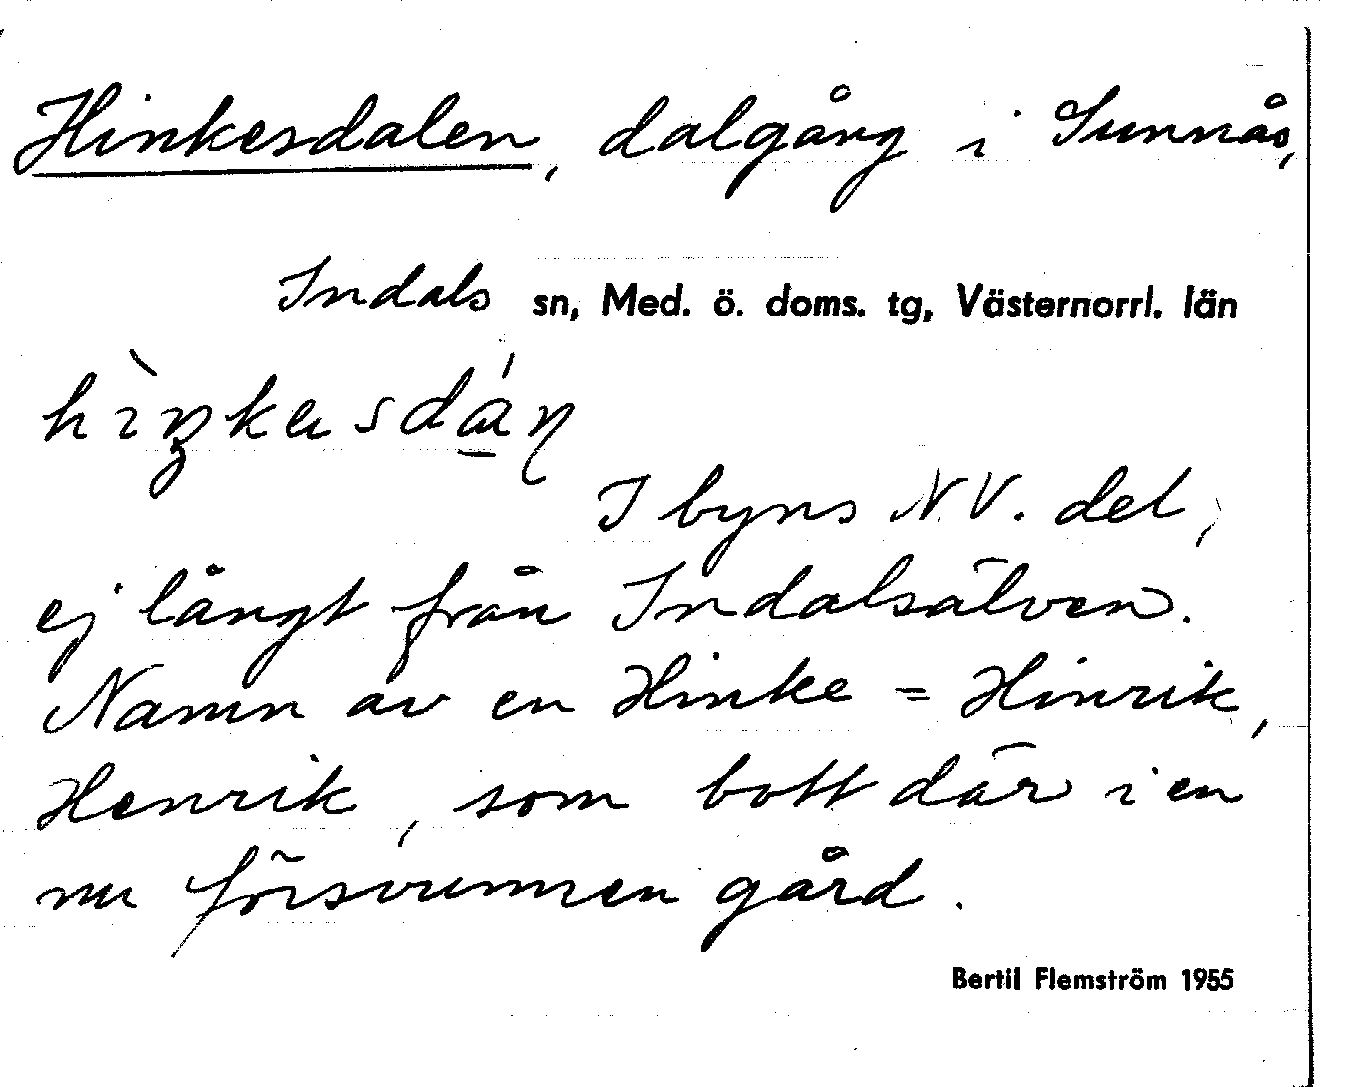 Hinkesdalen, dalgång i Sunnås,
Indals sn, Med. ö. doms. tg, Västernorrl. län
I byns N.V. del,
ej långt från Indalsälven.
Namn av en Hinke = Hinrik,
Henrik, som bott där i en
nu försvunnen gård.
Bertil Flemström 1955